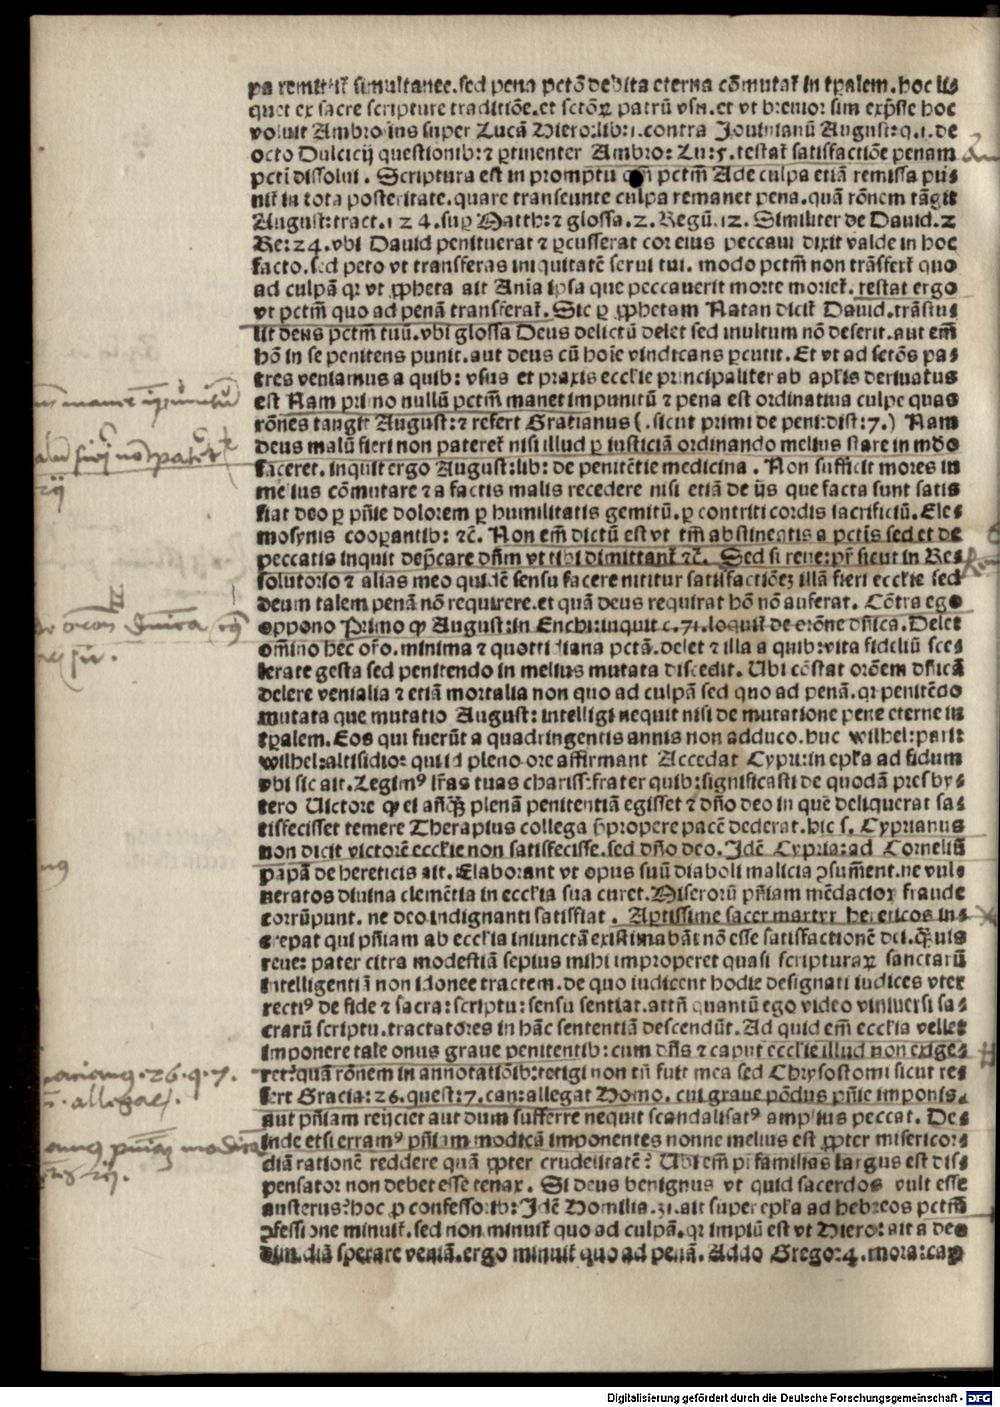 pa remittit᷑ simultanee.sed pena pctō debita eterna cōmutat᷑ in tp̱alem.hoc li⸗
quet ex sacre scripture traditiōe.et sctōꝝ patrū vsu.et vt breuior sim exp̄sse hoc
voluit Ambrosius super Lucā Hiero:lib:1.contra Jouinianū August:q.1.de
octo Dulcicij questionib:⁊ ꝑtinenter Ambro: Lu:5.testat᷑ satisfactiōe penam
pcti dissolui . Scriptura est in promptu qm̄ pctm̄ Ade culpa etiā remissa pu⸗
nit᷑ in tota posteritate.quare transeunte culpa remanet pena.quā rōnem tāgit
August:tract.124.suꝑ Matth:⁊ glossa.2.Regū.12. Similiter de Dauid.2
Re:24.vbi Dauid penituerat ⁊ ꝑcusserat cor eius peccaui dixit valde in hoc
facto.sed peto vt transferas iniquitatē serui tui. modo pctm̄ non trāsfert᷑ quo
ad culpā qꝛ vt ꝓpheta ait Ania ipsa que peccauerit morte moriet᷑. restat ergo
vt pctm̄ quo ad penā transferat᷑. Sic ꝑ ꝓphetam Natan dicit᷑ Dauid.trāstu⸗
lit deus pctm̄ tuū.vbi glossa Deus delictū delet sed inultum nō deserit.aut em̄
hō in se penitens punit.aut deus cū hoīe vindicans ꝑcutit. Et vt ad sctōs pa⸗
tres veniamus a quib: vsus et praxis eccl̄ie principaliter ab apl̄is deriuatus
est Nam primo nullū pctm̄ manet impunitū ⁊ pena est ordinatiua culpe quas
rōnes tangit August:⁊ refert Gratianus (.sicut primi de peni:dist:7.) Nam
deus malū fieri non pateret᷑ nisi illud ꝑ iusticiā ordinando melius stare in mūdo
faceret.inquit ergo August:lib: de penitētie medicina . Non sufficit mores in
melius cōmutare ⁊ a factis malis recedere nisi etiā de ijs que facta sunt satis
fiat deo ꝑ pn̄ie dolorem ꝑ humilitatis gemitū.ꝑ contriti cordis sacrificiū.Ele⸗
mosynis cooꝑantib: ⁊c̄. Non em̄ dictū est vt tm̄ abstineatis a pctis sed et de
peccatis inquit dep̄care dn̄m vt tibi dimittant᷑ ⁊c̄. Sed si reue:pr̄ sicut in Re⸗
solutorio ⁊ alias meo quidē sensu facere nititur satisfactiōeꝫ illā fieri eccl̄ie sed
deum talem penā nō requirere.et quā deus requirat hō nō auferat. Cōtra ego
oppono Primo ꝙ August:in Enchi:inquit c.71.loquit᷑ de orōne dn̄ica. Delet
om̄ino hec or̄o.minima ⁊ quottidiana pctā.delet ⁊ illa a quib:vita fideliū sce⸗
lerate gesta sed penitendo in melius mutata discedit. Ubi cōstat orōem dn̄icā
delere venialia ⁊ etiā mortalia non quo ad culpā sed quo ad penā.qꝛ penitēdo
mutata que mutatio August: intelligi nequit nisi de mutatione pene eterne in
tp̱alem.Eos qui fuerūt a quadringentis annis non adduco.huc wilhel:parisi
wilhel:altisidior quid pleno ore affirmant Accedat Cypri:in epl̄a ad fidum
vbi sic ait.Legimꝰ lr̄as tuas chariss:frater quib:significasti de quodā presby⸗
tero Uictore ꝙ ei anteq̄ꝫ plenā penitentiā egisset ⁊ dn̄o deo in quē deliquerat sa⸗
tisfecisset temere Therapius collega p̄propere pacē dederat.hic s. Cyprianus
non dicit victorē eccl̄ie non satisfecisse.sed dn̄o deo. Jdē Cypria:ad Corneliū
papā de hereticis ait. Elaborant vt opus suū diaboli malicia ꝯsumēt.ne vul⸗
neratos diuina clemētia in eccl̄ia sua curet. Miserorū pn̄iam mēdacioꝝ fraude
corrūpunt. ne deo indignanti satisfiat . Aptissime sacer martyr hereticos in⸗
crepat qui pn̄iam ab eccl̄ia iniunctā existimabāt nō esse satisfactionē dei.q̄ꝫuis
reue: pater citra modestiā sepius mihi improperet quasi scripturaꝝ sanctarū
intelligentiā non idonee tractem.de quo iudicent hodie designati iudices vter
rectiꝰ de fide ⁊ sacra:scriptu:sensu sentiat.attn̄ quantū ego video vniuersi sa⸗
crarū scriptu.tractatores in hāc sententiā descendūt. Ad quid em̄ eccl̄ia vellet
imponere tale onus graue penitentib:cum dn̄s ⁊ caput eccl̄ie illud non exige⸗
ret?quā rōnem in annotatiōib:tetigi non tn̄ fuit mea sed Chrysostomi sicut re⸗
fert Gracia:26.quest:7.can:allegat Homo. cui graue pōdus pn̄ie imponis.
aut pn̄iam reijciet aut dum sufferre nequit scandalisatꝰ amplius peccat. De⸗
inde etsi erramꝰ pn̄iam modicā imponentes nonne melius est ꝓpter misericor⸗
diā rationē reddere quā ꝓpter crudelitatē? Ubi em̄ pr̄familias largus est dis⸗
pensator non debet esse tenax. Si deus benignus vt quid sacerdos vult esse
austerus?hoc ꝓ confessorib: Jdē Homilia.31.ait super epl̄a ad hebreos pctm̄
ꝯfessione minuit᷑.sed non minuit᷑ quo ad culpā.qꝛ impiū est vt Hiero:ait a deo
dimidiā sperare veniā.ergo minuit᷑ quo ad penā. Addo Grego:4.mora:cap
26.q.7.
allegat
Digitalisierung gefördert durch die Deutsche Forschungsgemeinschaft - DFG